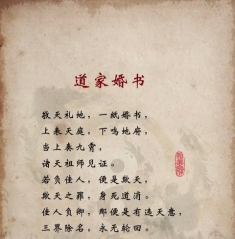 道家婚书
敬天礼地，一纸婚书，
上奏天庭，下鸣地府，
当上奏九霄，
诸天祖师见证。
若负佳人，便是欺天，
欺天之罪，身死道消。
佳人负卿，那便是有违天意，
三界除名，永无轮回。